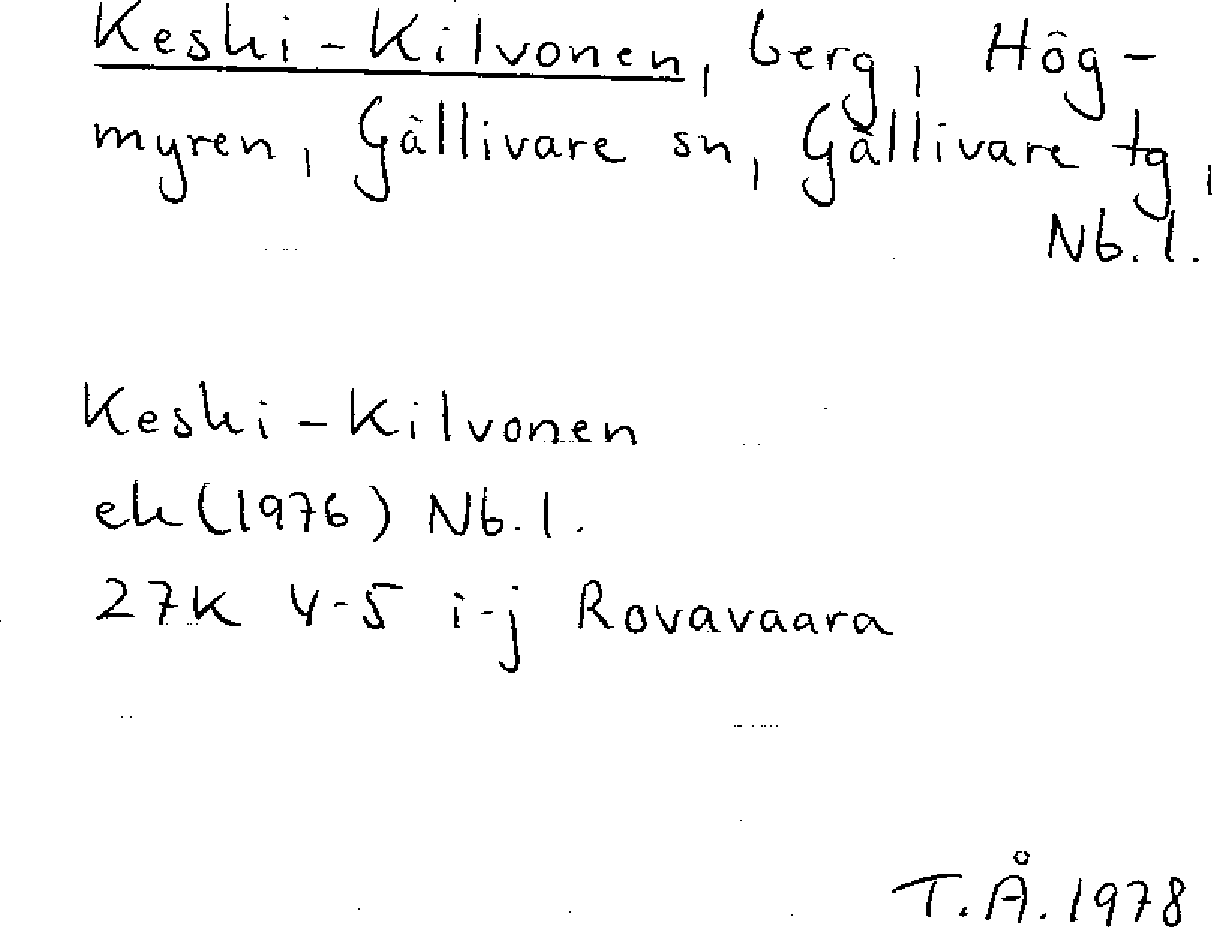 Keski-Kilvonen, berg, Hög-
myren, Gällivare sn, Gällivare tg,
Nb.l.
Keski-Kilvonen
ek (1976) Nb.l.
27K 4-5 i-j Rovavaara
T.Å. 1978